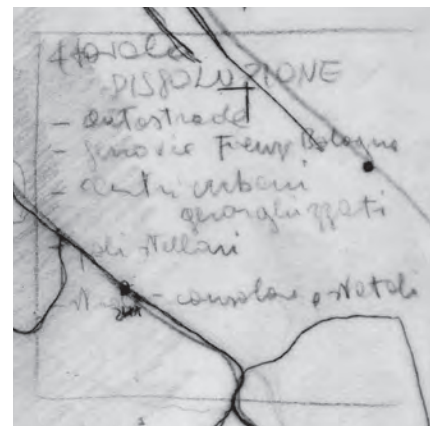 4 tavola
DISSOLUZIONE
- autostrade
- ferrovie Firenze Bologna
- centri urbani
gerarchizzati
- poli stellari
- consolari e statali